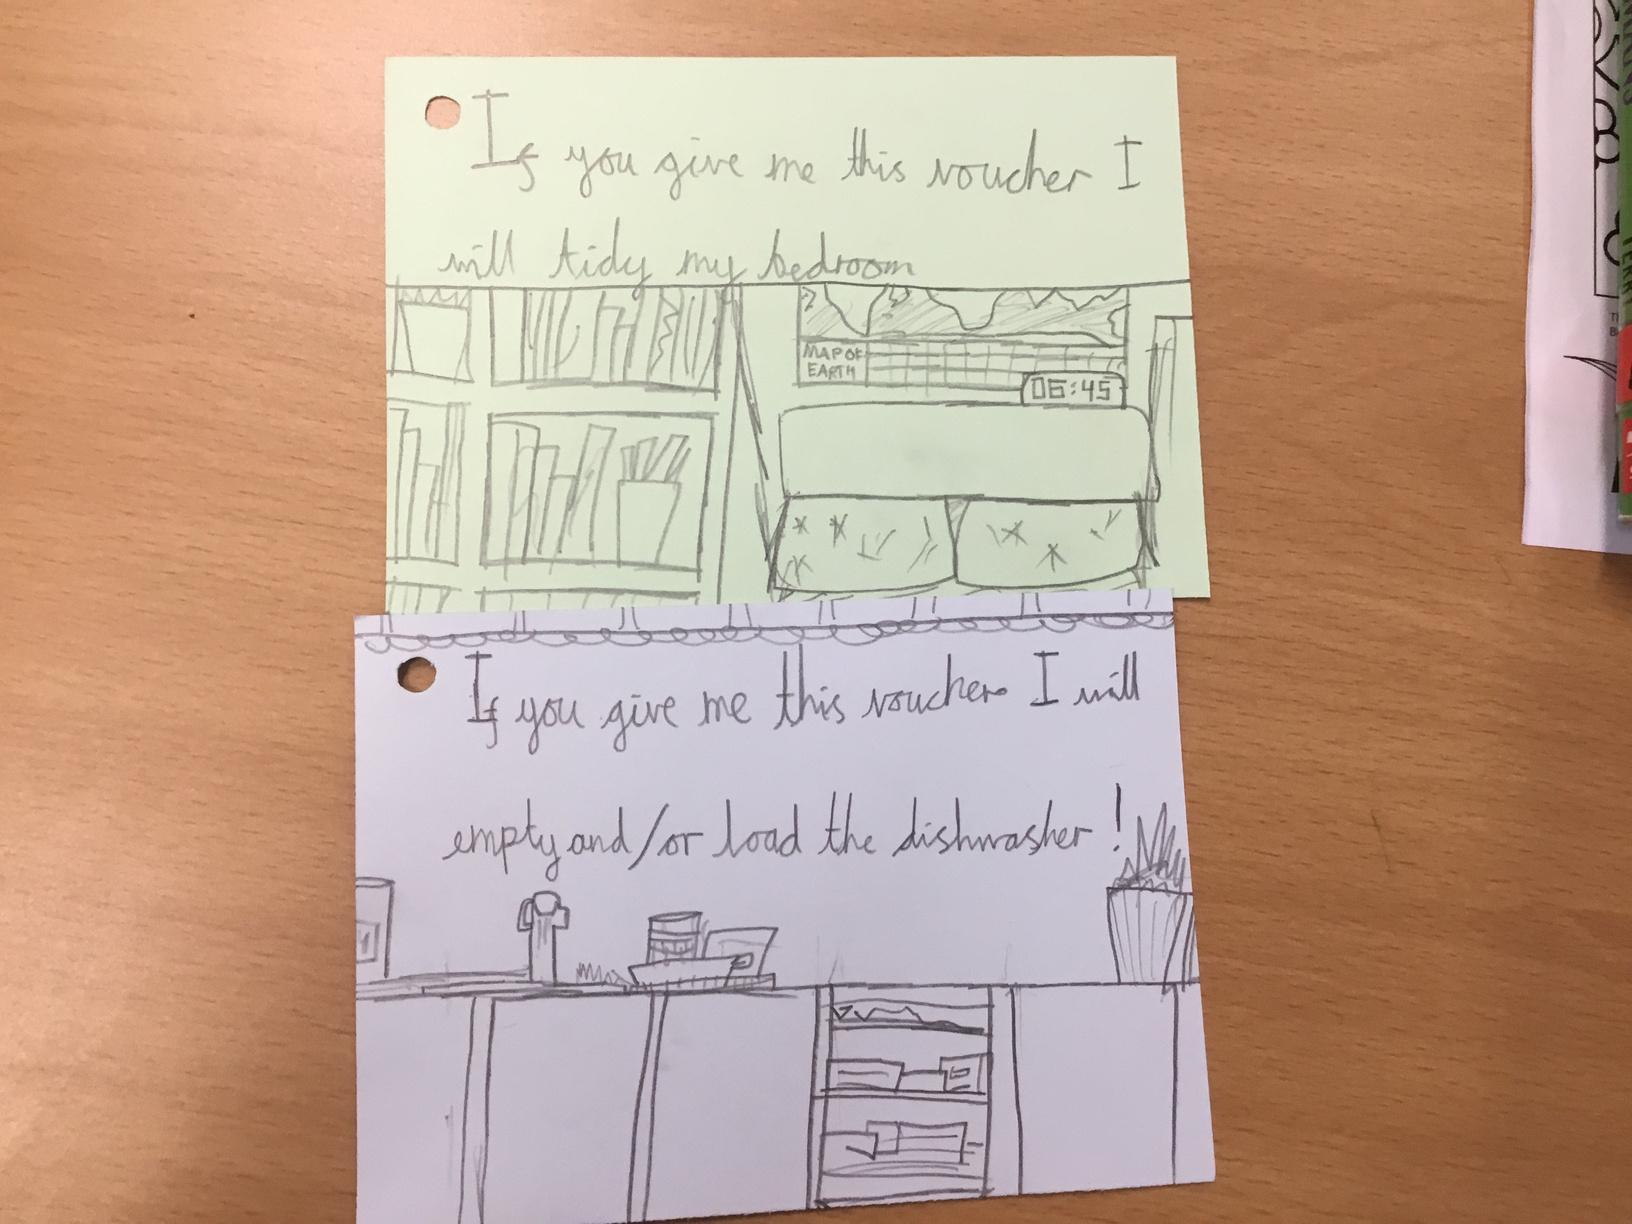 If you give me this voucher I
will tidy my bedroom
MAP OF
EARTH
06:45
If you give me this voucher I will
empty and/or load the dishwasher!